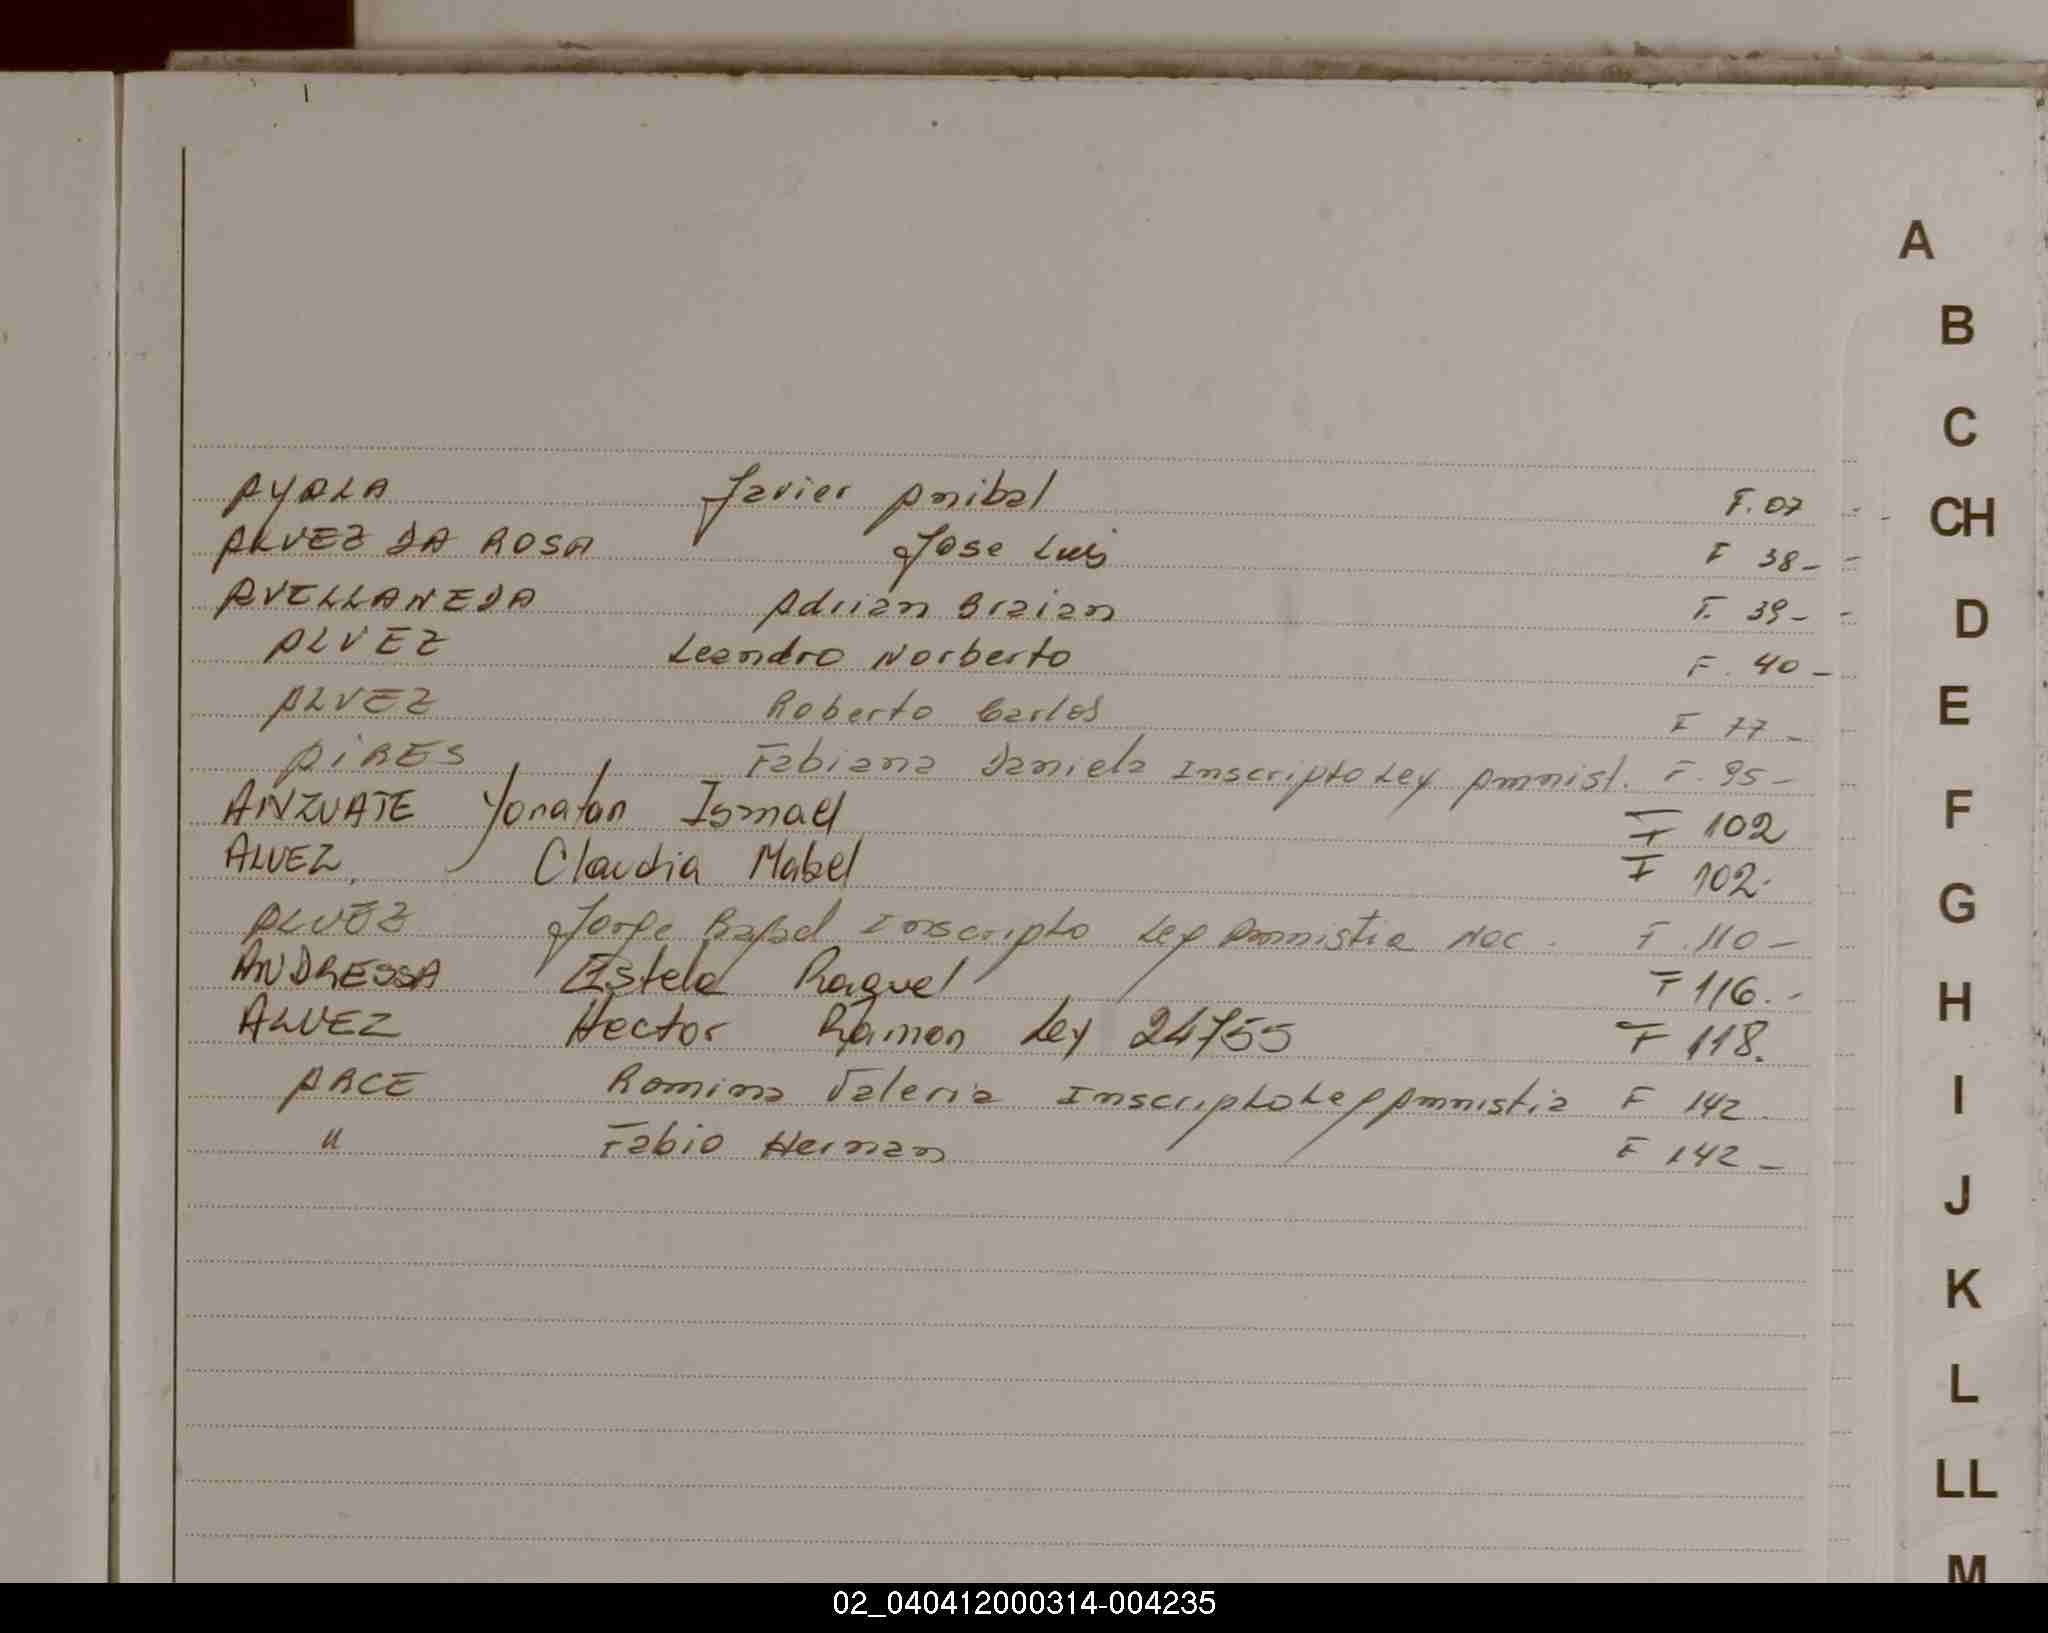 AYALA Javier Anibal F. 07
ALVEZ DA ROSA Jose Luis F 38-
AVELLANEDA Adrian Braian F. 39-
ALVEZ Leandro Norberto F. 40-
ALVEZ Roberto Carlos F 77-
AIRES Fabiana Daniela Inscripto Ley Amnist. F. 95-
ANZUATE Yonatan Ismael F 102
ALVEZ, Claudia Mabel F 102.
ALVEZ Jorge Rafael Inscripto Ley Amnistia Nac. F. 110-
ANDRESSA Estela Raquel F 116.-
ALVEZ Hector Ramon Ley 24755 F 118.
ARCE Romina Valeria Inscripto Ley Amnistia F 142
" Fabio Hernan F 142-
A
B
C
CH
D
E
F
G
H
I
J
K
L
LL
M
02_040412000314-004235